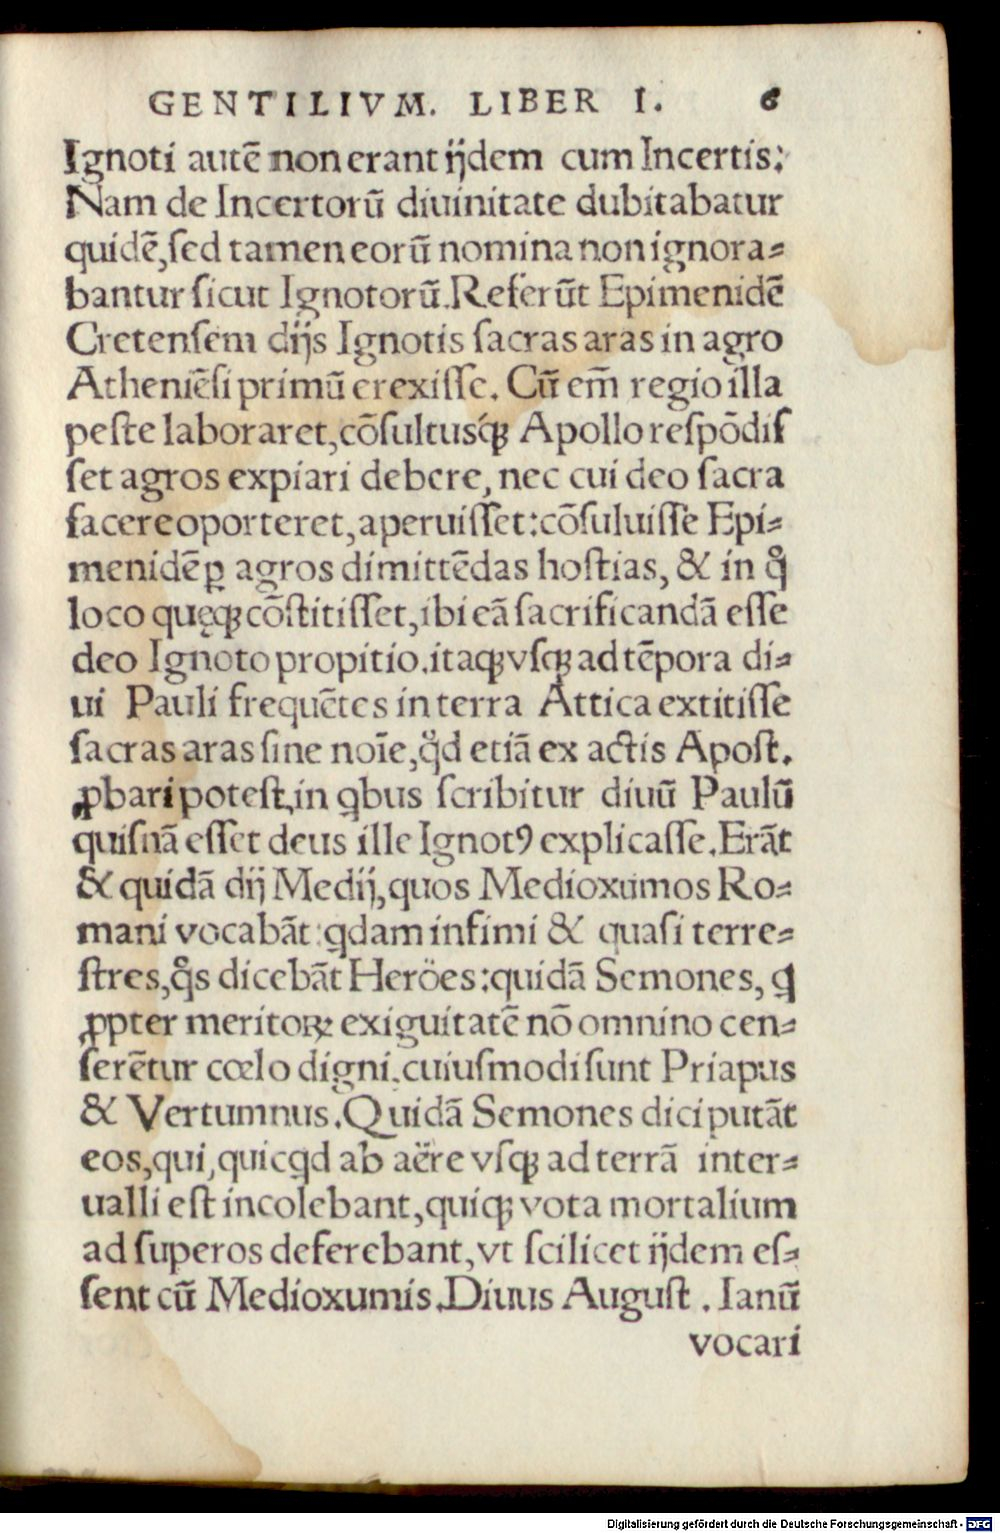 GENTILIVM. LIBER I. 6
Ignoti autẽ non erant ijdem cum Incertis:
Nam de Incertorũ diuinitate dubitabatur
quidẽ, sed tamen eorũ nomina non ignora⸗
bantur sicut Ignotorũ. Referũt Epimenidẽ
Cretensem dijs Ignotis sacras aras in agro
Atheniẽsi primũ erexisse. Cũ em̃ regio illa
peste laboraret, cõsultusq́ꝫ Apollo respõdiſ
set agros expiari debere, nec cui deo sacra
facere oporteret, aperuisset: cõsuluisse Epi⸗
menidẽ ꝑ agros dimittẽdas hostias, & in q̊
loco quęqꝫ cõstitisset, ibi eã sacrificandã esse
deo Ignoto propitio. itaqꝫ vsqꝫ ad tẽpora di⸗
ui Pauli frequẽtes in terra Attica extitisse
sacras aras sine noĩe, q̈d etiã ex actis Apost.
ꝓbari potest, in ꝗbus scribitur diuũ Paulũ
quisnã esset deus ille Ignotꝰ explicasse. Erãt
& quidã dij Medij, quos Medioxumos Ro⸗
mani vocabãt: ꝗdam infimi & quasi terre⸗
stres, q̊s dicebãt Heröes: quidã Semones, ꝗ
ꝓpter meritoꝝ exiguitatẽ nõ omnino cen⸗
serẽtur cœlo digni. cuiusmodi sunt Priapus
& Vertumnus. Quidã Semones dici putãt
eos, qui, quicꝗd ab aëre vsqꝫ ad terrã inter⸗
ualli est incolebant, quiqꝫ vota mortalium
ad superos deferebant, vt scilicet ijdem es⸗
sent cũ Medioxumis. Diuus August. Ianũ
vocari
Digitalisierung gefördert durch die Deutsche Forschungsgemeinschaft - DFG